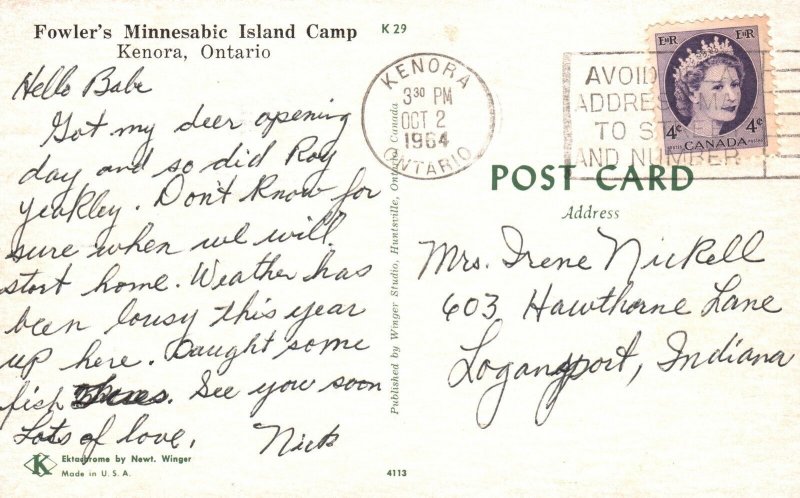 Fowler's Minnesabic Island Camp
Kenora, Ontario
K 29
Hello Babe
Got my deer opening
day and so did Roy
Yeakley. Don't know for
sure when we will
start home. Weather has
been lousy this year
up here. Caught some
fish. See you soon
Lots of love,
Nick
Ektachrome by Newt. Winger
Made in U. S. A.
K
4113
Published by Winger Studio, Huntsville, Ontario, Canada
KENORA
3 30 PM
OCT 2
1964
ONTARIO
AVOID
ADDRES
TO ST
AND NUMBER
E II R
E II R
4¢
4¢
CANADA
POST CARD
Address
Mrs. Irene Nickell
603 Hawthorne Lane
Logansport, Indiana